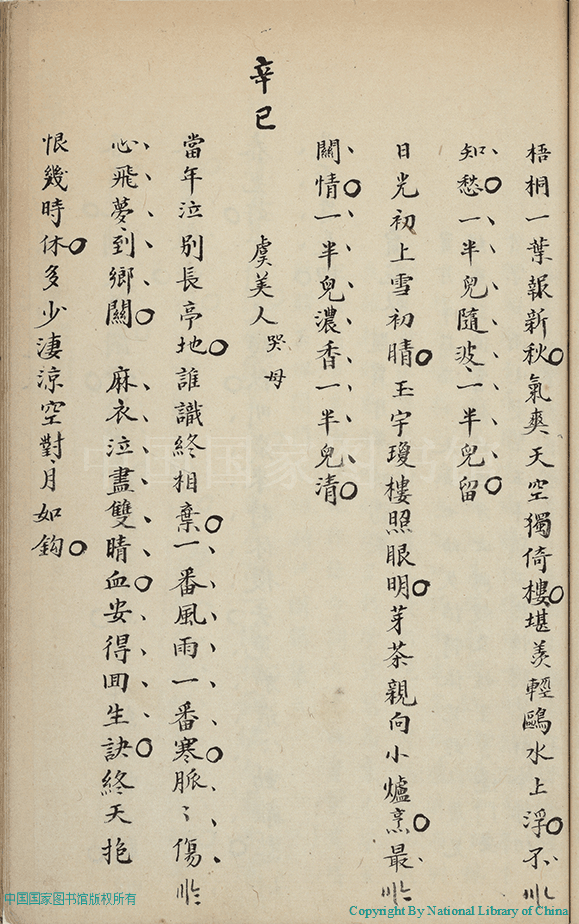 梧桐一葉報新秋氣爽天空獨倚樓堪羨輕鷗水上浮不
知愁一半兒隨波一半兒留
日光初上雪初晴玉宇瓊樓照眼明芽茶親向小爐烹最
關情一半兒濃香一半兒清
辛巳
虞美人 哭母
當年泣別長亭地誰識終相棄一番風雨一番寒脈〻傷
心飛夢到鄉關 麻衣泣盡雙睛血安得回生訣終天抱
恨幾時休多少淒涼空對月如鈎
中国国家图书馆
中国国家图书馆版权所有
Copyright By National Library of China